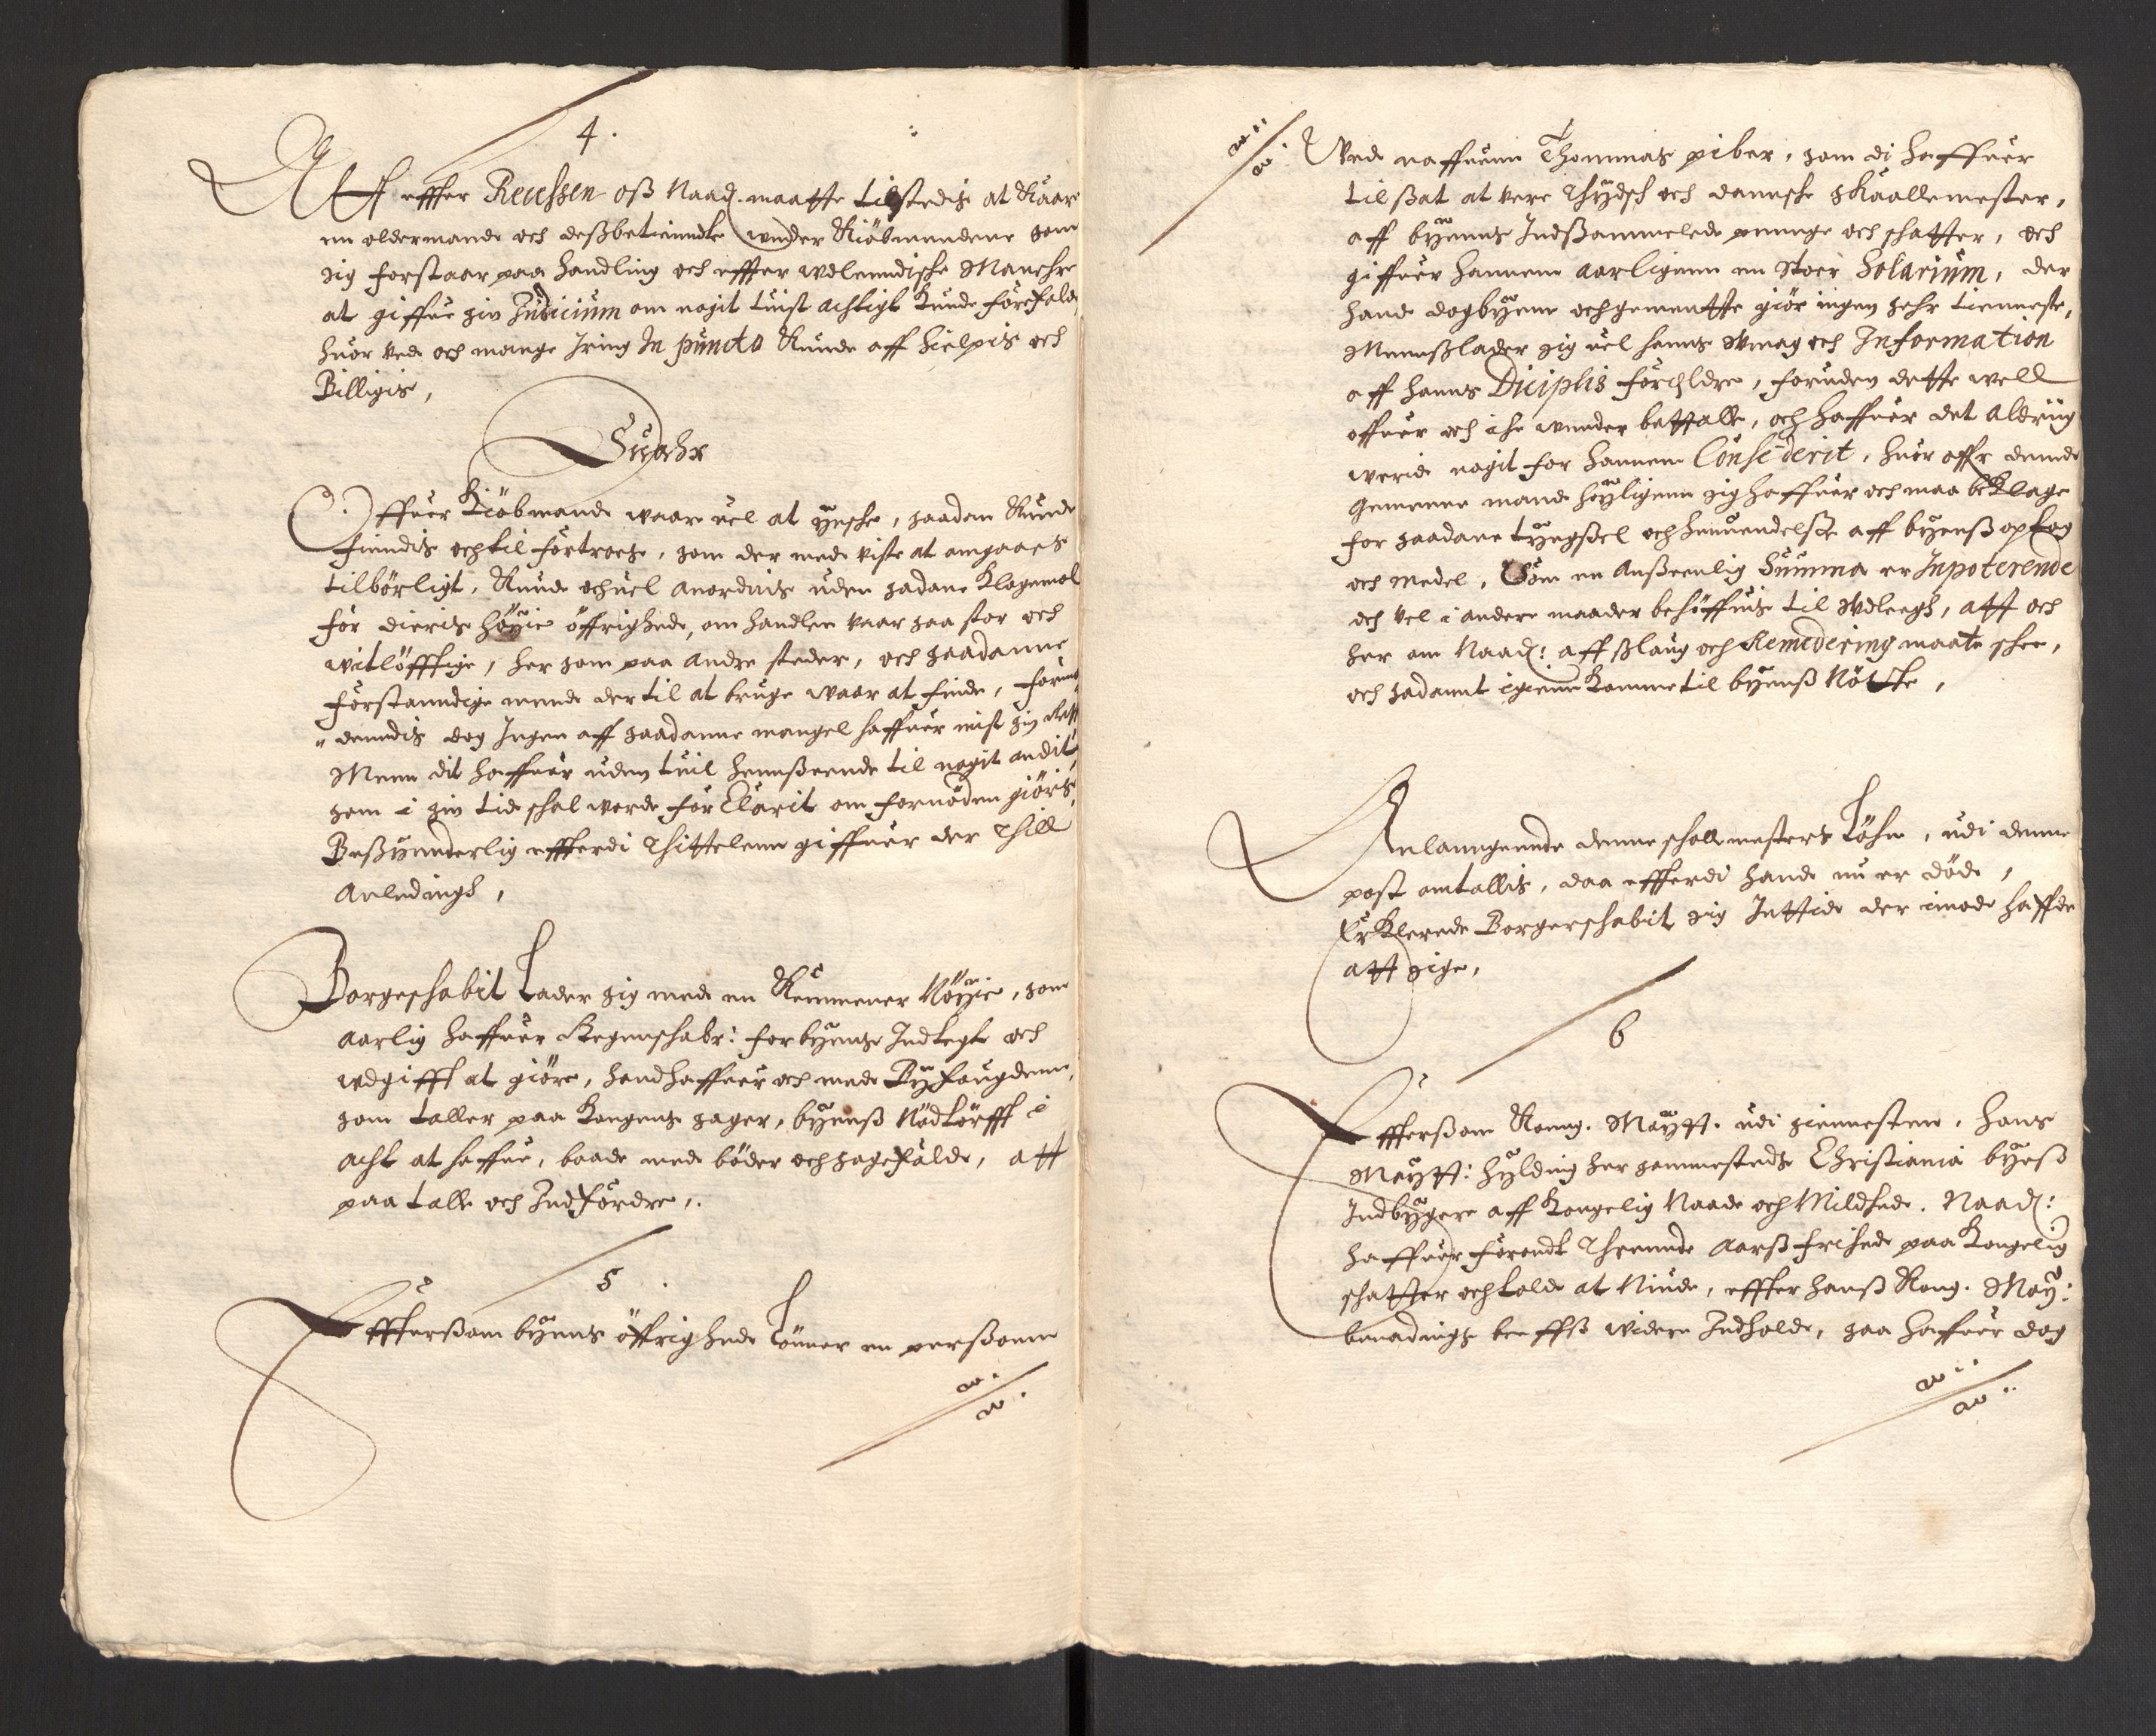 4.
Att effter Recessen oß Naad. maatte tilstedis at Kaare
en oldermand och deßbetienndte under Kiöbmendene som
sig forstaar paa handling och effter udlenndische Manehre
at giffue sin Judicium om nogit tuist achtigt kunde forefalde,
huor ved och mange Irring In puncto Kunde aff hielpis och
Billigis,
Suahr
Offuer Kiöbmand waare uel at ynsche, saadan Kunde
finndis och til fortroes, som der med viste at omgaaes
tilbörligt, Kunde och uel anordnis uden sadane Klagemol
for dieris höyie öffrighed, om handlen vaar saa stor och
witlöfftige, her som paa andre steder, och saadanne
forstanndige mend der til at bruge waar at finde, formo
"denndis dog Ingen aff saadanne mangel haffuer mist sin Rett
Menn dit haffuer uden tuil hennseende til nogit andit
som i sin tid schal worde for Clarit om fornöden giöris,
Beßynnderlig effterdi Thittelenn giffuer der Thill
Anledingh,
Borgeschabit Lader sig med en Kemmener Nöyie, som
aarlig haffuer Regenschabr: for byens Indtegt och
udgifft at giöre, hand haffuer och med Byfougdenn,
som taller paa Kongens sager, byenß Nödtörfft i
acht at haffue, baade med böder och sagefald, att
paa talle och Indfordre,.
5.
Effterßom byens öffrighed Lönner en perßonn
Ved naffuenn Thommas piber, som di haffuer
til ßat at vere Thydsch och dannsche skaallemester,
aff byenns Indßammelede pennge och schatter, och
giffuer hannem aarligenn en Stoer Solarium, der
hand dog byenn och gemenhtte giör ingen sehr tienneste,
Mennßlader sig uel hanns Umag och Information
aff hanns Diciplis forelldre, foruden dette well
offuer och icke wunder bettalle, och haffuer det aldrüg
werid nogit for hannem Consederit, huor offr dennd
gemenne mand höyligenn sig haffuer och maa beklage
for saadane tyngßel och henuendelße aff byenß optog
och medel, Som en Anßeenlig Summa er Inpoterende
och vel i andere maader behöffuis til Udleegh, att och
her om Naad: affßlaug och Remedering maate schee,
och sadannt igienn komme til byenß Nötte,
Anlanngennde denne schollemesters Löhn, udi denne
post omtallis, daa effterdi hand nu er död,
Erklerede Borgerschabit sig Inttid der imod haffde
att sige,
6
Effterßom Konng. Maytt. udi siennesten, hans
Maytt: hylding her sammesteds Christiania byeß
Indbygere aff Kongelig Naade och Mildhed. Naad:
haffuer forondt Thrennde Aarß frihed paa Kongelig
schatter och told at Niude, effter hanß Kong. May:
benadings breffß widere Indhold, saa haffuer dog